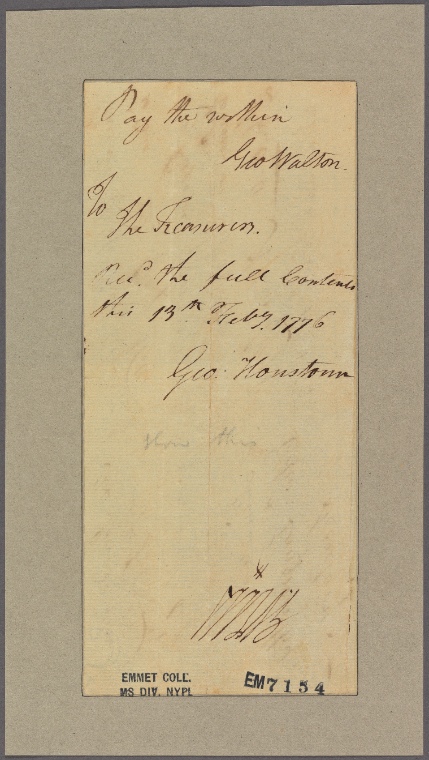 Pay the within
Geo Walton.
To
The Treasurers.
Rec.d the full Contents
this 13th Feby. 1776
Geo: Houstoun
this
EMMET COLL.
MS DIV. NYPL
EM7154